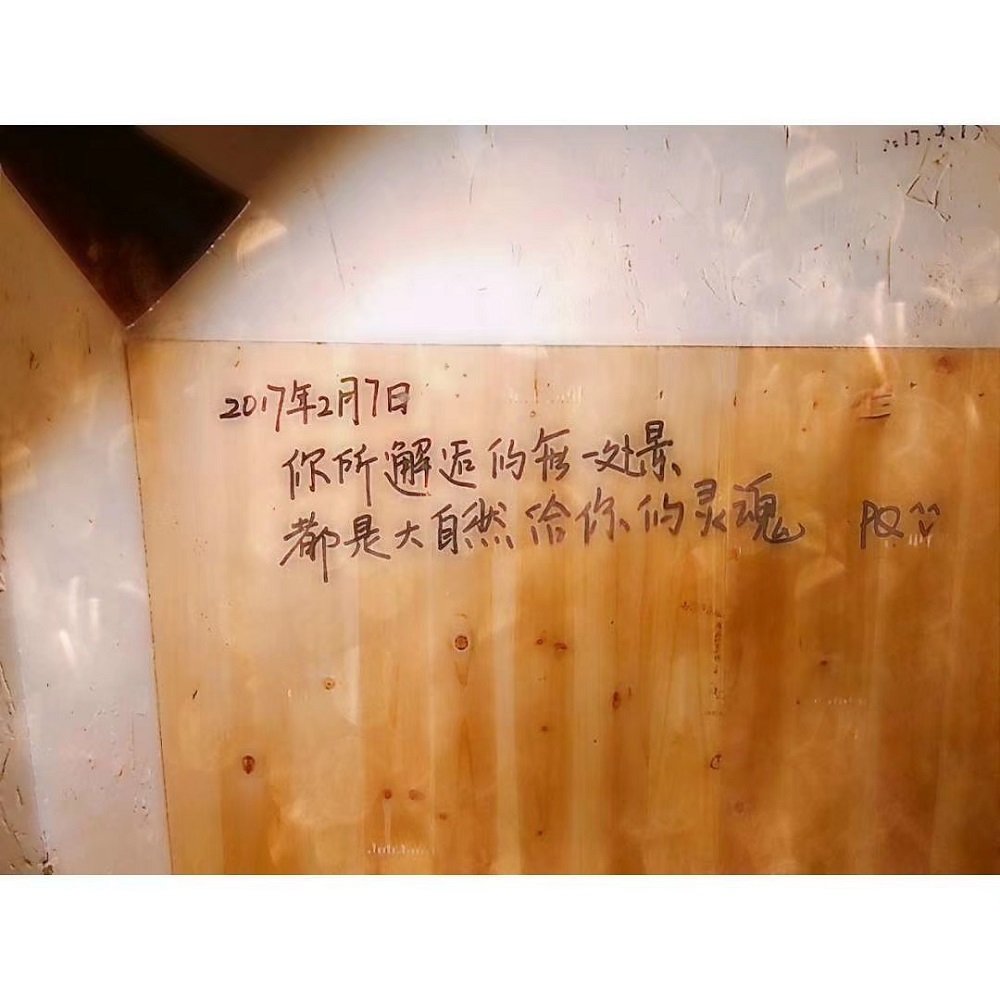 2017年2月7日
你所邂逅的每一处景
都是大自然给你的灵魂 PQ